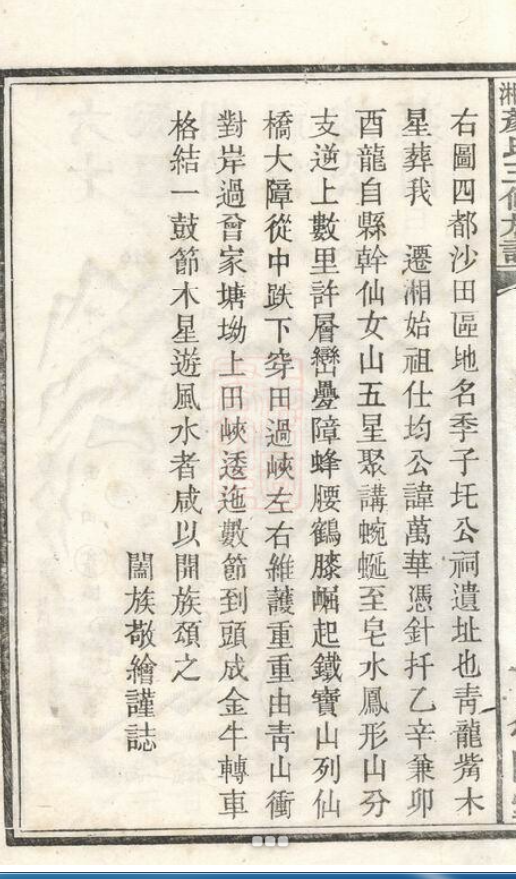 右圖四都沙田區地名季子圫公祠遺址也青龍嘴木
星葬我 遷湘始祖仕均公諱萬華憑針扦乙辛兼卯
酉龍自縣幹仙女山五星聚講蜿蜒至皂水鳳形山分
支逆上數里許層巒疊障蜂腰鶴膝崛起鐵寶山列仙
橋大障從中跌下穿田過峽左右維護重重由青山衝
對岸過曾家塘坳上田峽透迤數節到頭成金牛轉車
格結一鼓節木星遊風水者咸以開族頌之
闔族敬繪謹誌